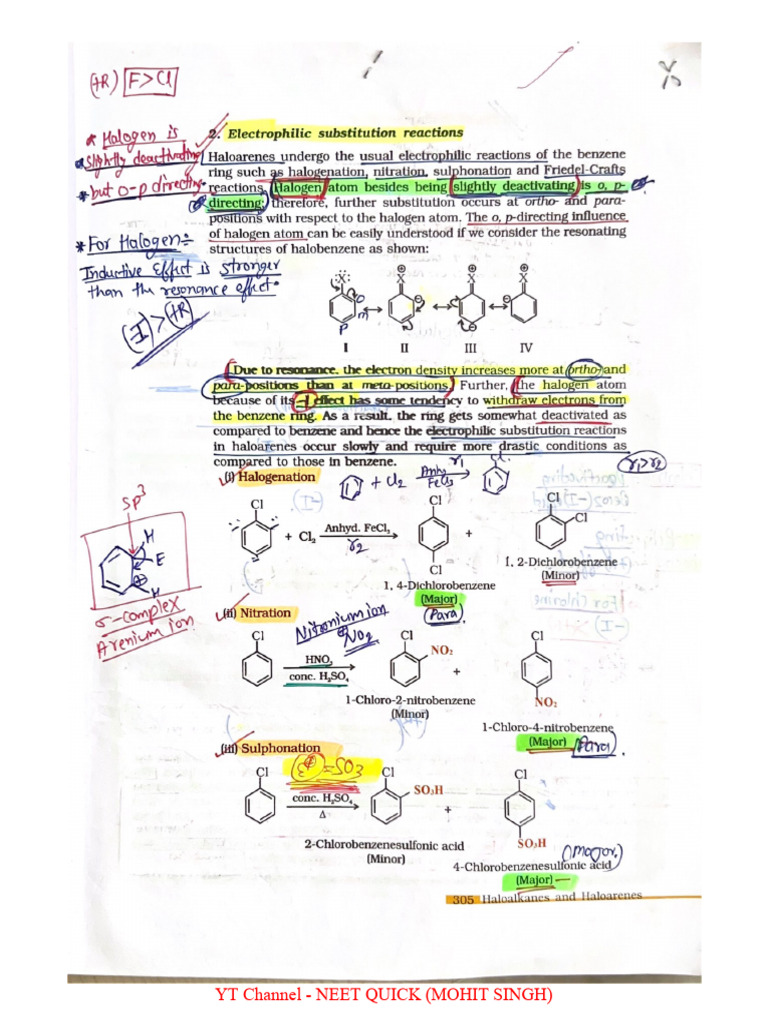 (+R) F>Cl
* Halogen is
slightly deactivating
* but o-p directing.
* For Halogen:-
Inductive Effect is stronger
than the resonance effect.
(-I) > (+R)
2. Electrophilic substitution reactions
Haloarenes undergo the usual electrophilic reactions of the benzene
ring such as halogenation, nitration, sulphonation and Friedel-Crafts
reactions. Halogen atom besides being slightly deactivating is o, p-
directing; therefore, further substitution occurs at ortho- and para-
positions with respect to the halogen atom. The o, p-directing influence
of halogen atom can be easily understood if we consider the resonating
structures of halobenzene as shown:
X X X X
o
m
P
I II III IV
Due to resonance, the electron density increases more at ortho- and
para-positions than at meta-positions. Further, the halogen atom
because of its –I effect has some tendency to withdraw electrons from
the benzene ring. As a result, the ring gets somewhat deactivated as
compared to benzene and hence the electrophilic substitution reactions
in haloarenes occur slowly and require more drastic conditions as
compared to those in benzene.
r1 > r2
(i) Halogenation
+ Cl2 Anhy FeCl3 r1 Cl
Cl Cl Cl
Cl
+ Cl2 Anhyd. FeCl3 +
r2
Cl
1, 2-Dichlorobenzene
(Minor)
1, 4-Dichlorobenzene
(Major)
(Para)
SP3
H
E
H
σ-complex
Arenium ion
(ii) Nitration
Nitronium ion
NO2
Cl Cl Cl
HNO3 NO2
conc. H2SO4 +
NO2
1-Chloro-2-nitrobenzene
(Minor)
1-Chloro-4-nitrobenzene
(Major) (Para)
(iii) Sulphonation
E⊕ = SO3
Cl Cl Cl
conc. H2SO4 SO3H
Δ +
SO3H
2-Chlorobenzenesulfonic acid
(Minor)
(Major.)
4-Chlorobenzenesulfonic acid
(Major)
305 Haloalkanes and Haloarenes
YT Channel - NEET QUICK (MOHIT SINGH)